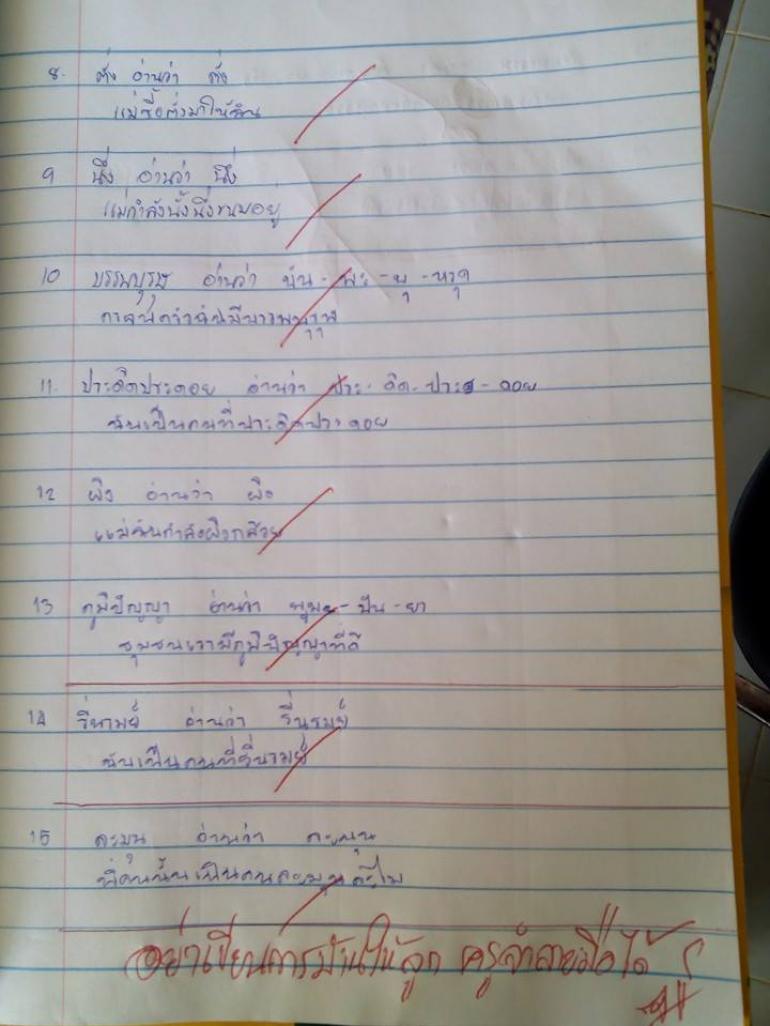 8. ตั่ง อ่านว่า ตั่ง
แม่ซื้อตั่งมาให้ฉัน
9 นึ่ง อ่านว่า นึ่ง
แม่กำลังนั้งนึ่งขนมอยู่
10 บรรพบุรุษ อ่านว่า บัน - พะ - บุ - หรุด
11. ประดิดประดอย อ่านว่า ประ - ดิด - ประ - ดอย
ฉันเป็นคนที่ประดิดประดอย
12 ผิง อ่านว่า ผิง
แม่ฉันกำลังผิงกล้วย
13 ภูมิปัญญา อ่านว่า พูม - ปัน - ยา
ชุมชนเรามีภูมิปัญญาที่ดี
14 รื่นรมย์ อ่านว่า รื่นรมย์
ฉันเป็นคนที่รื่นรมย์
15 ละมุน อ่านว่า ละมุน
พี่คนนั้นเป็นคนละมุนละไม
อย่าเขียนการบ้านให้ลูก ครูจำลายมือได้